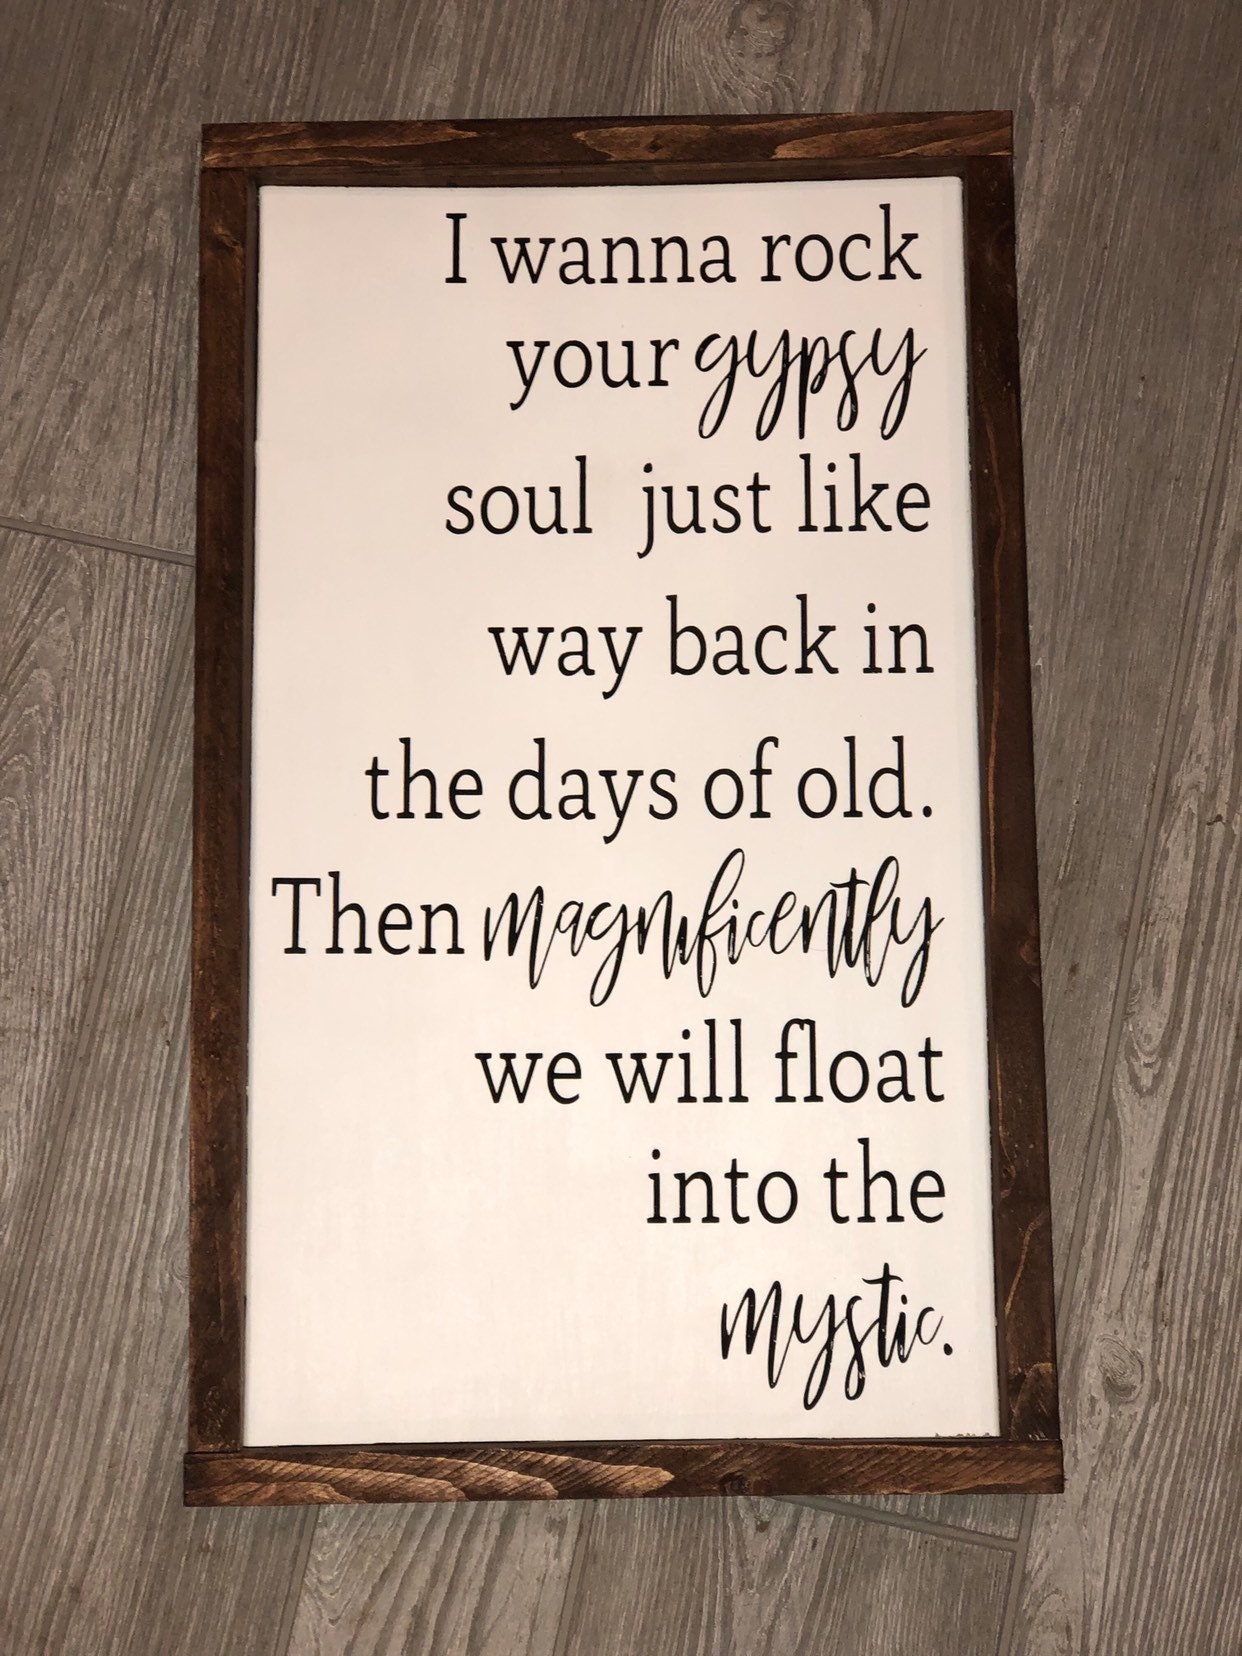 I wanna rock
your gypsy
soul just like
way back in
the days of old.
Then magnificently
we will float
into the
mystic.